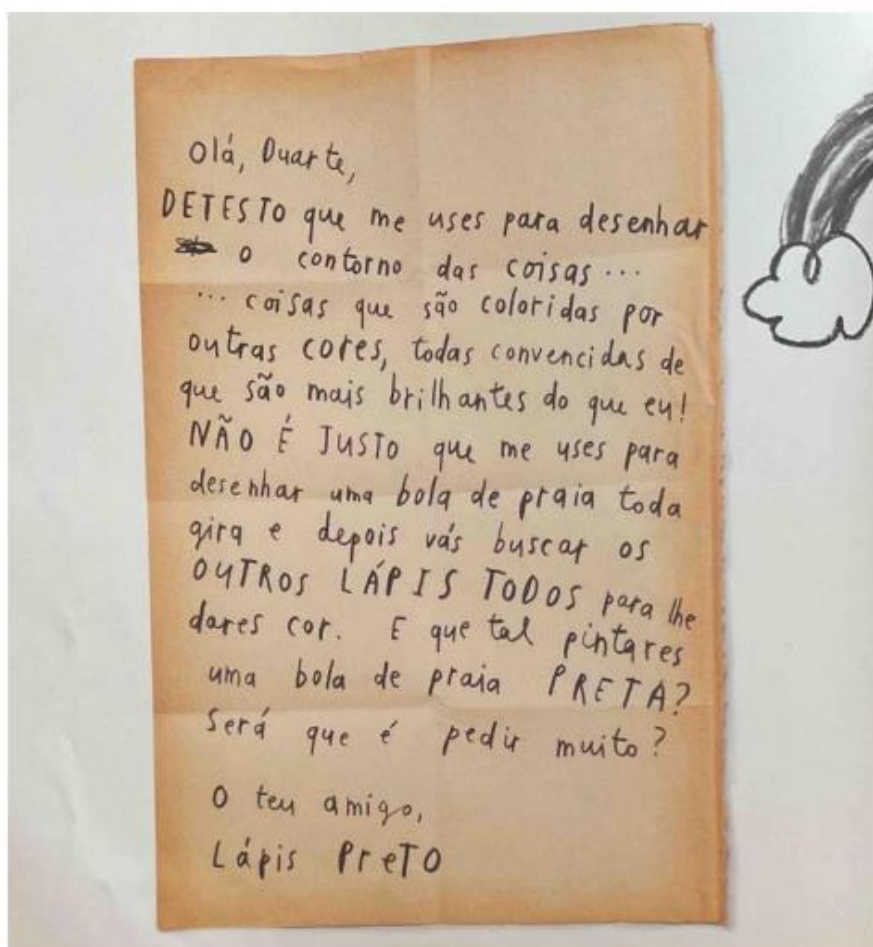 Olá, Duarte,
DETESTO que me uses para desenhar
o contorno das coisas...
... coisas que são coloridas por
outras cores, todas convencidas de
que são mais brilhantes do que eu!
NÃO É JUSTO que me uses para
desenhar uma bola de praia toda
gira e depois vás buscar os
OUTROS LÁPIS TODOS para lhe
dares cor. E que tal pintares
uma bola de praia PRETA?
Será que é pedir muito?
O teu amigo,
Lápis PreTO